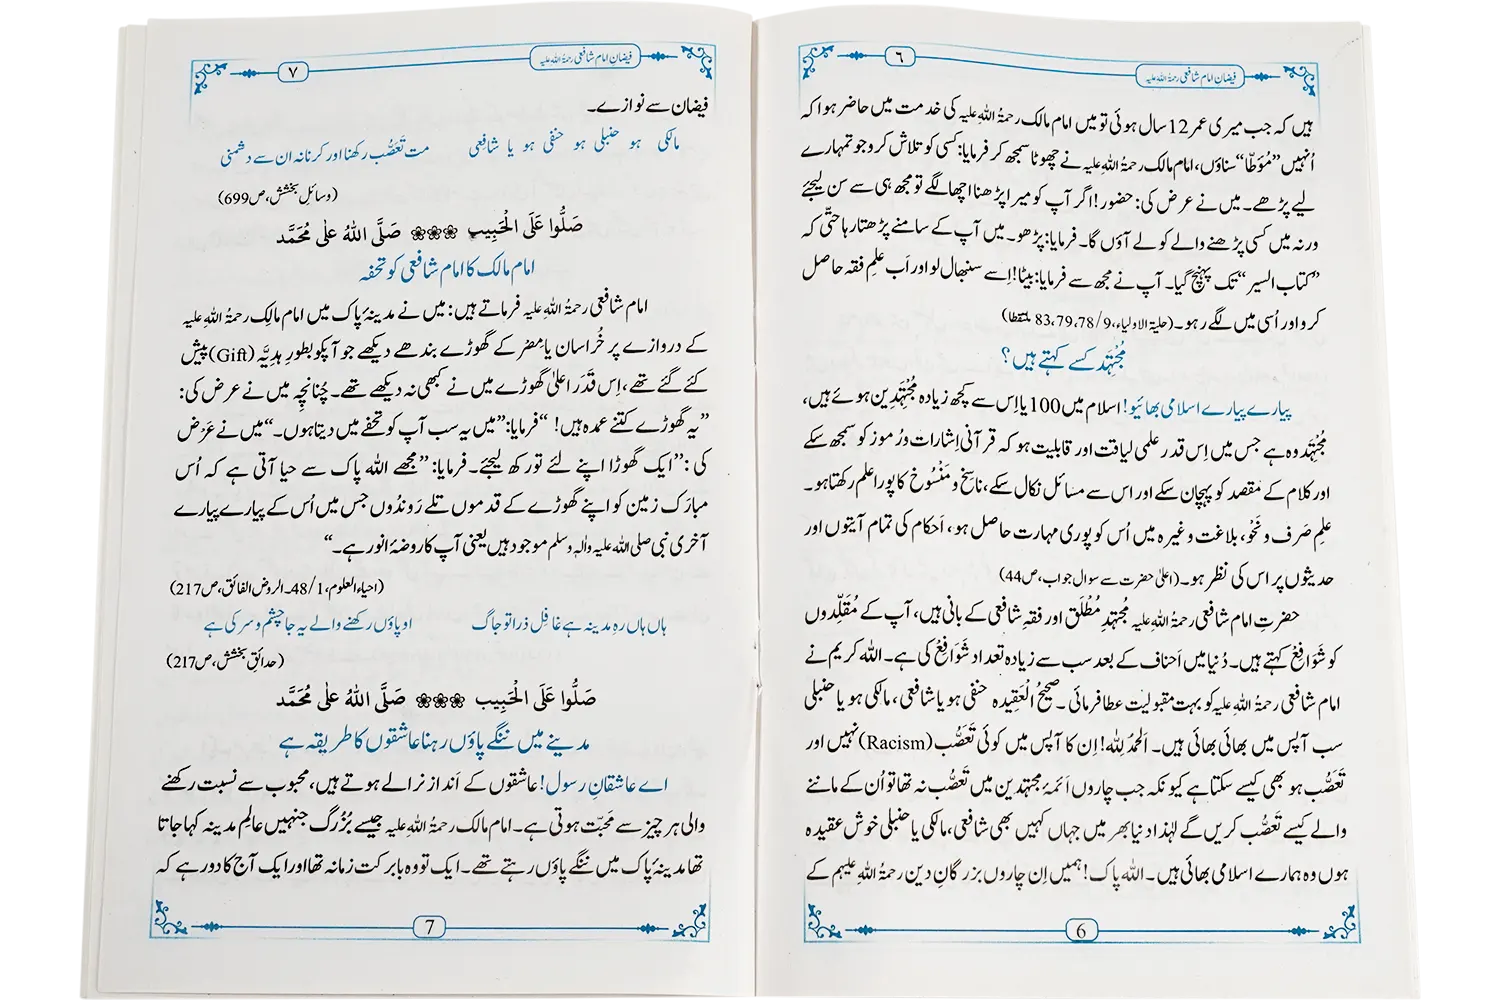 فیضانِ امام شافعی رحمۃُ اللہِ علیہ
٦
ہیں کہ جب میری عمر 12 سال ہوئی تو میں امام مالک رحمۃُ اللہِ علیہ کی خدمت میں حاضر ہوا کہ
اُنہیں ”مُؤطّا“ سناؤں، امام مالک رحمۃُ اللہِ علیہ نے چھوٹا سمجھ کر فرمایا: کسی کو تلاش کرو جو تمہارے
لیے پڑھے۔ میں نے عرض کی: حضور! اگر آپ کو میرا پڑھنا اچھا لگے تو مجھ ہی سے سن لیجئے
ورنہ میں کسی پڑھنے والے کو لے آؤں گا۔ فرمایا: پڑھو۔ میں آپ کے سامنے پڑھتا رہا حتّٰی کہ
”کتاب السیر“ تک پہنچ گیا۔ آپ نے مجھ سے فرمایا: بیٹا! اِسے سنبھال لو اور اَب علمِ فقہ حاصل
کرو اور اُسی میں لگے رہو۔ (حلیۃ الاولیاء، 9/78، 79، 83 ملتقطا)
مُجْتَہِد کسے کہتے ہیں؟
پیارے پیارے اسلامی بھائیو! اسلام میں 100 یا اِس سے کچھ زیادہ مُجْتَہِدین ہوئے ہیں،
مُجْتَہِد وہ ہے جس میں اِس قدر علمی لیاقت اور قابلیت ہو کہ قرآنی اِشارات و رُموز کو سمجھ سکے
اور کلام کے مقصد کو پہچان سکے اور اس سے مسائل نکال سکے، ناسخ و مَنْسُوخ کا پورا علم رکھتا ہو۔
علمِ صَرف و نَحْو، بلاغت وغیرہ میں اُس کو پوری مہارت حاصل ہو، اَحکام کی تمام آیتوں اور
حدیثوں پر اس کی نظر ہو۔ (اعلیٰ حضرت سے سوال جواب، ص44)
حضرتِ امام شافعی رحمۃُ اللہِ علیہ مُجتہدِ مُطْلَق اور فقہِ شافعی کے بانی ہیں، آپ کے مُقَلِّدوں
کو شَوَافِعْ کہتے ہیں۔ دُنیا میں اَحناف کے بعد سب سے زیادہ تعداد شَوَافِعْ کی ہے۔ اللہ کریم نے
امام شافعی رحمۃُ اللہِ علیہ کو بہت مقبولیت عطا فرمائی۔ صحیحُ الْعَقِیدہ حنفی ہو یا شافعی، مالکی ہو یا حنبلی
سب آپس میں بھائی بھائی ہیں۔ اَلحمدُ لِلّٰہ! اِن کا آپس میں کوئی تَعَصُّب (Racism) نہیں اور
تَعَصُّب ہو بھی کیسے سکتا ہے کیونکہ جب چاروں اَئمۂ مجتہدین میں تَعَصُّب نہ تھا تو اُن کے ماننے
والے کیسے تَعَصُّب کریں گے لہٰذا دنیا بھر میں جہاں کہیں بھی شافعی، مالکی یا حنبلی خوش عقیدہ
ہوں وہ ہمارے اسلامی بھائی ہیں۔ اللہ پاک! ہمیں اِن چاروں بزرگانِ دین رحمۃُ اللہِ علیہم کے
6
فیضانِ امام شافعی رحمۃُ اللہِ علیہ
٧
فیضان سے نوازے۔
مالکی ہو حنبلی ہو حنفی ہو یا شافِعی مت تَعَصُّب رکھنا اور کرنا نہ ان سے دشمنی
(وسائلِ بخشش، ص699)
صَلُّوا عَلَى الْحَبِيب ❀❀❀ صَلَّى اللهُ عَلٰى مُحَمَّد
امام مالک کا امام شافعی کو تحفہ
امام شافعی رحمۃُ اللہِ علیہ فرماتے ہیں: میں نے مدینۂ پاک میں امام مالِک رحمۃُ اللہِ علیہ
کے دروازے پر خُراسان یا مِصْر کے گھوڑے بندھے دیکھے جو آپ کو بطورِ ہدِیَّہ (Gift) پیش
کئے گئے تھے، اِس قَدَر اعلیٰ گھوڑے میں نے کبھی نہ دیکھے تھے۔ چُنانچِہ میں نے عرض کی:
”یہ گھوڑے کتنے عمدہ ہیں!“ فرمایا: ”میں یہ سب آپ کو تحفے میں دیتا ہوں۔“ میں نے عَرْض
کی: ”ایک گھوڑا اپنے لئے تو رکھ لیجئے۔ فرمایا: ”مجھے اللہ پاک سے حیا آتی ہے کہ اُس
مبارَک زمین کو اپنے گھوڑے کے قدموں تلے رَوندُوں جس میں اُس کے پیارے پیارے
آخری نبی صلی اللہ علیہ والہٖ وسلم موجود ہیں یعنی آپ کا روضۂ انور ہے۔“
(احیاء العلوم، 1/48۔ الروض الفائق، ص217)
ہاں ہاں رہِ مدینہ ہے غافِل ذرا تو جاگ او پاؤں رکھنے والے یہ جا چشم و سر کی ہے
(حدائقِ بخشش، ص217)
صَلُّوا عَلَى الْحَبِيب ❀❀❀ صَلَّى اللهُ عَلٰى مُحَمَّد
مدینے میں ننگے پاؤں رہنا عاشقوں کا طریقہ ہے
اے عاشقانِ رسول! عاشقوں کے اَنداز نرالے ہوتے ہیں، محبوب سے نسبت رکھنے
والی ہر چیز سے محبّت ہوتی ہے۔ امام مالک رحمۃُ اللہِ علیہ جیسے بُزُرگ جنہیں عالِمِ مدینہ کہا جاتا
تھا مدینۂ پاک میں ننگے پاؤں رہتے تھے۔ ایک تو وہ بابرکت زمانہ تھا اور ایک آج کا دور ہے کہ
7